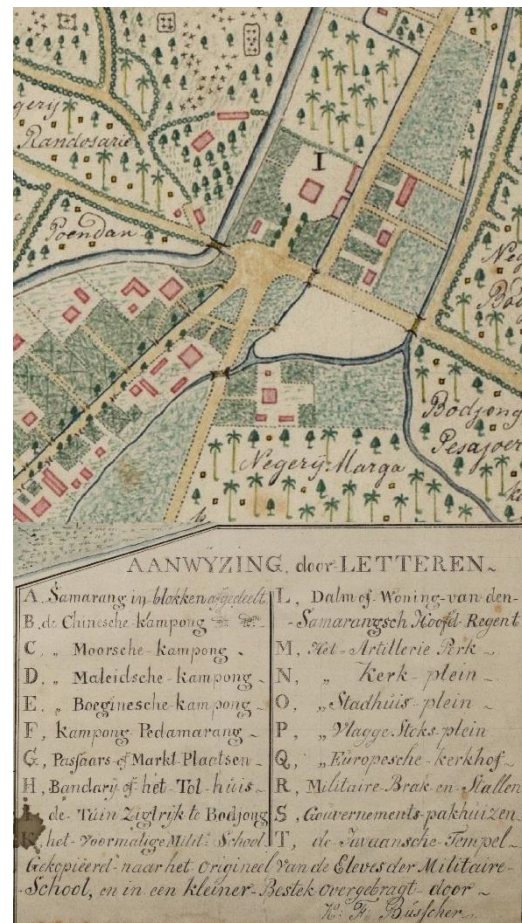 gerÿ
Randosarie
Poendan
I
Neg
Bod
Bodjong
Pesajoer
Negerÿ Marga
AANWŸZING, door LETTEREN
A, Samarang in blokken afgedeelt
B, de Chinesche kampong
C, „ Moorsche kampong
D, „ Maleidsche kampong
E, „ Boeginesche kampong
F, kampong Pedamarang
G, Passars of Markt Plaetsen
H, Bandarÿ of het Tol-huis
de Tuin Zigtrijk te Bodjong
het voormalige Milit: School
L, Dalm of Woning van den
Samarangsch Hoofd Regent
M, Het Artillerie Perk
N, „ Kerk-plein
O, „ Stadhuis plein
P, „ Vlagge Stoks-plein
Q, „ Europesche kerkhof
R, Militaire Brak en Stallen
S, Gouvernements-pakhuizen
T, de Javaansche Tempel
Gekopiëerd naar het Origineel van de Eleves der Militaire
School, en in een kleiner Bestek overgebragt door
H: F: Büsscher